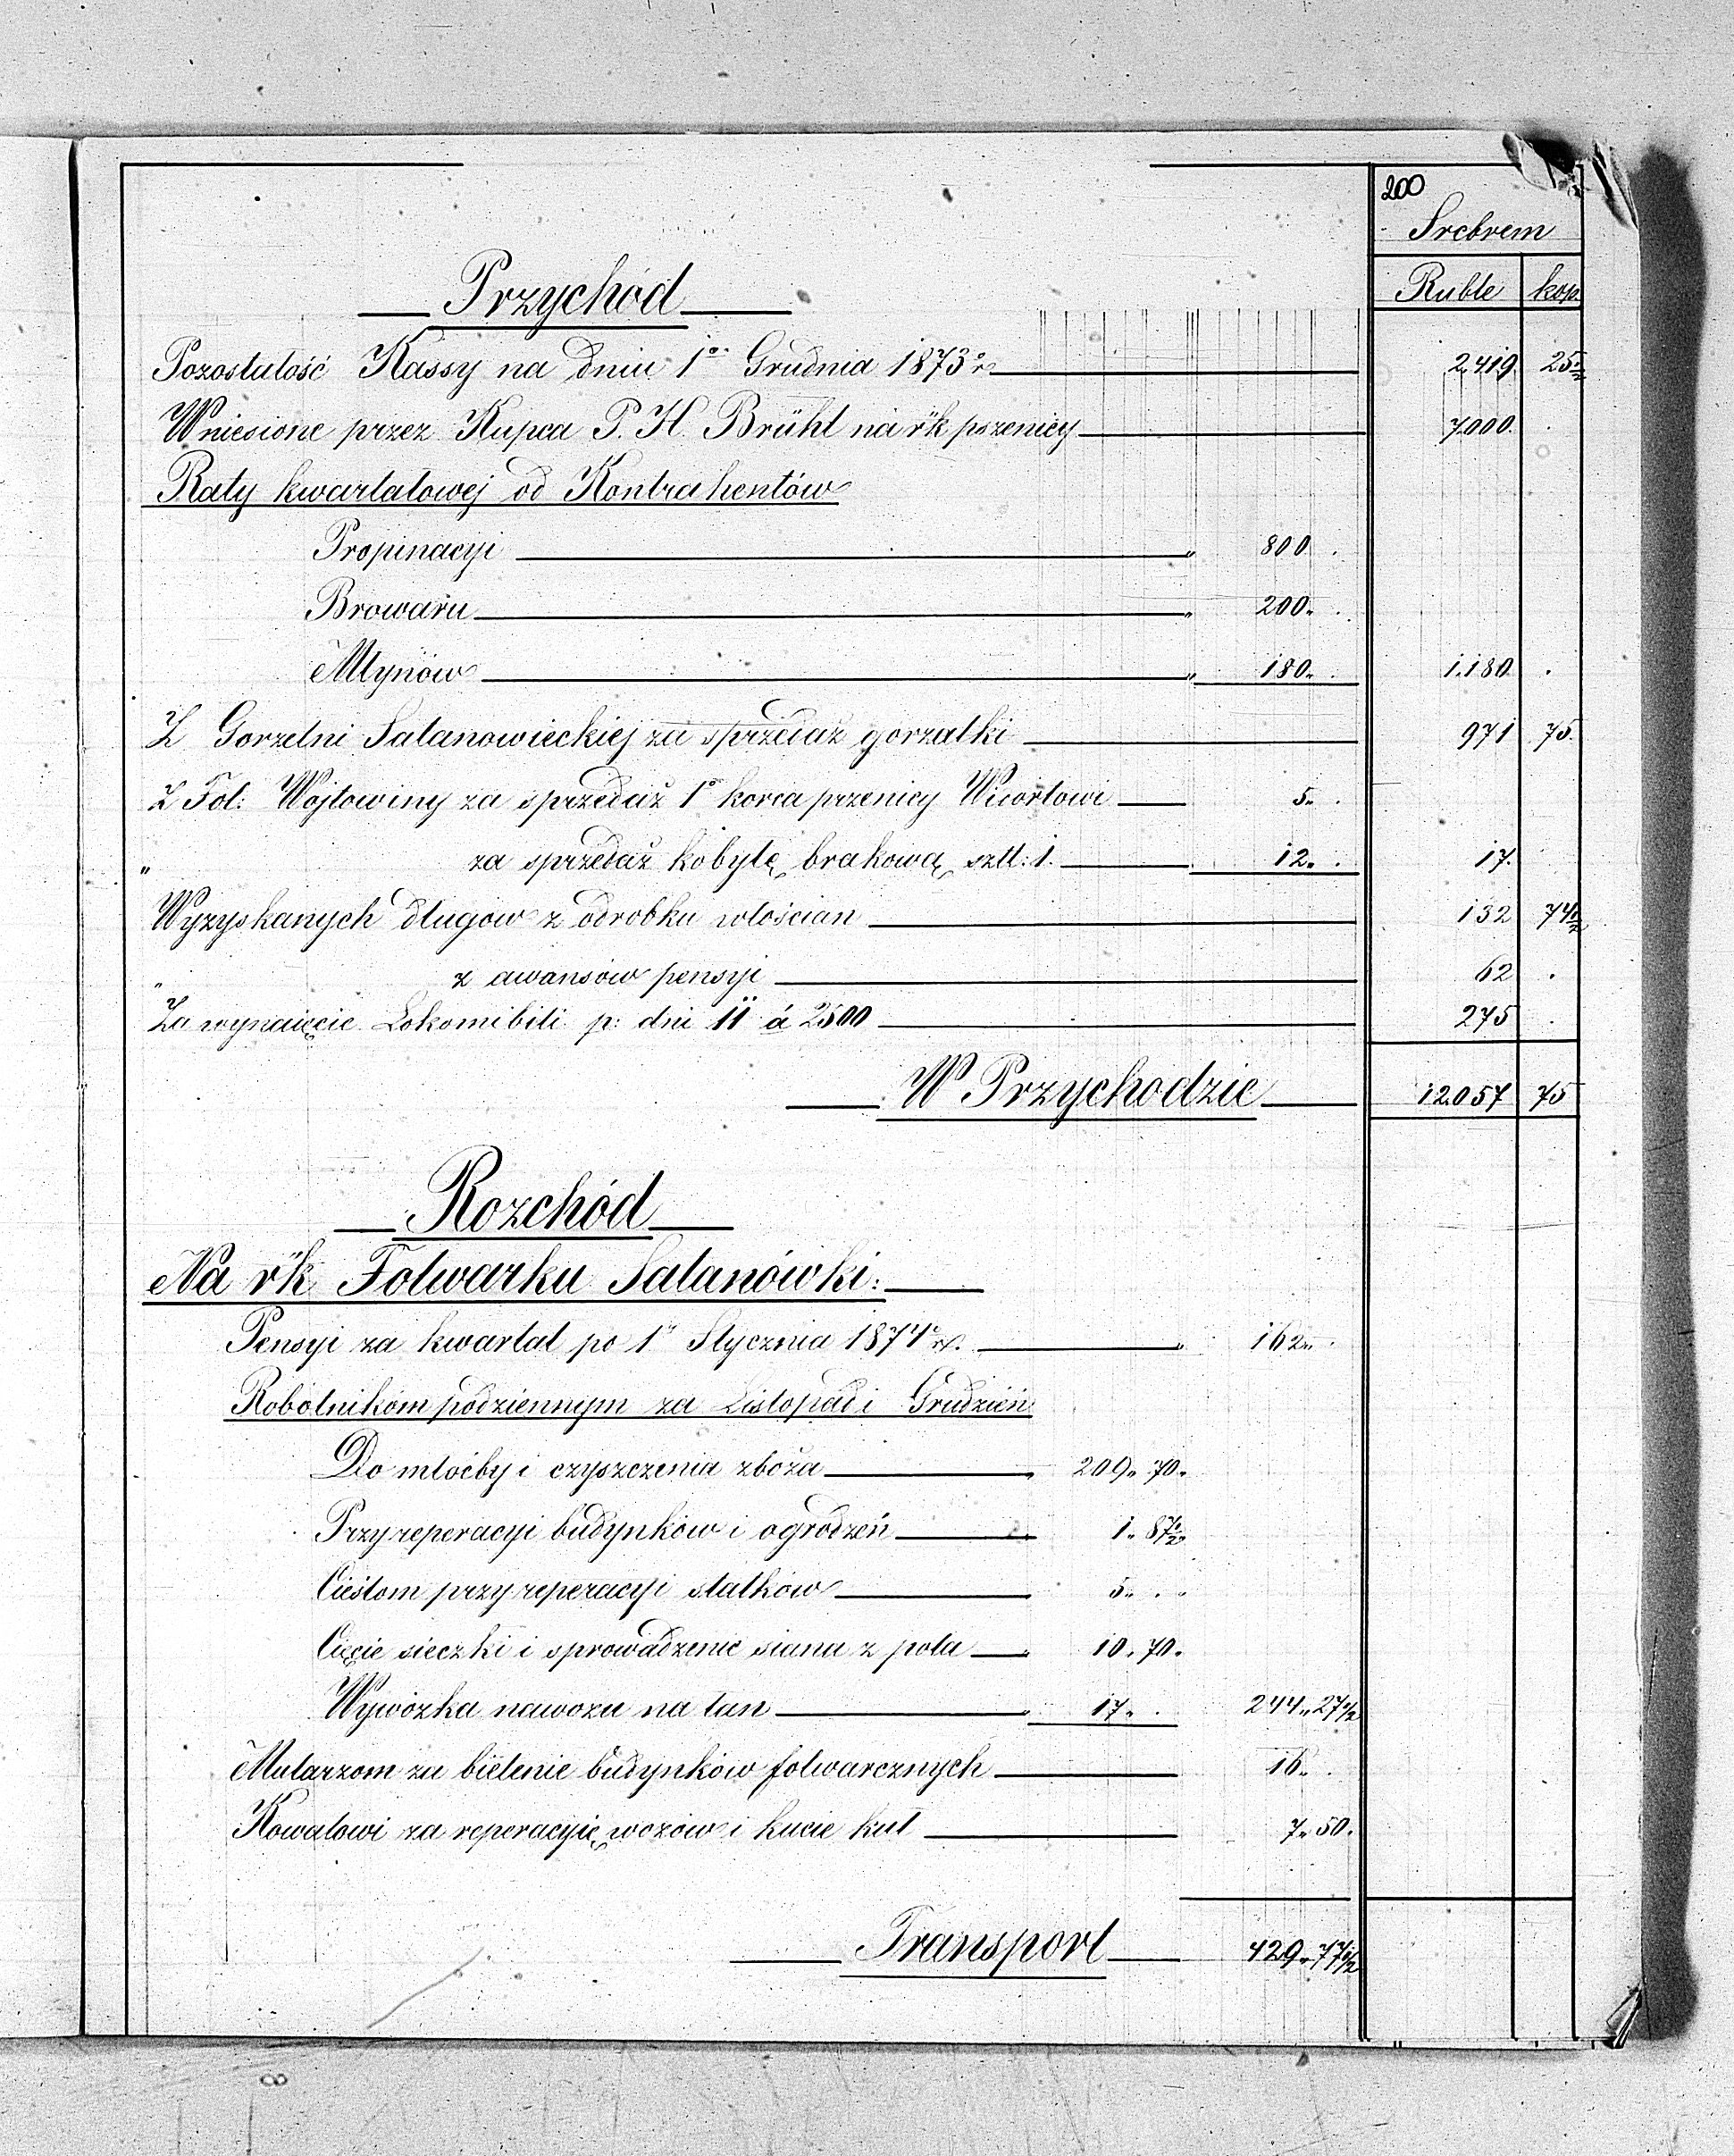 200
Srebrem
Ruble kop.
Przychód
Pozostałość Kassy na dniu 1º Grudnia 1873º r. 2,419 25½
Wniesione przez Kupca P. H. Brühl na r'k pszenicy 7000 .
Raty kwartałowej od Kontrahentów
Propinacyi „ 800 .
Browaru „ 200„ .
Młynów „ 180„ . 1.180 .
Z Gorzelni Satanowieckiej za sprzedaż gorzałki 971 75.
Z Fol: Wójtowiny za sprzedaż 1º korca przenicy 5„ .
„ za sprzedaż kobyłę brakową sztt: 1. 12„ . 17. .
Wyzyskanych długów z odrobku włościan 132 74½
„ z awansów pensyi 62 .
Za wynaięcie Lokomibili p: dni 11 á 2500 275 .
W Przychodzie 12.057 75
Rozchód
Na r'k Folwarku Satanówki:
Pensyi za kwartał po 1" Stycznia 1874º r. „ 162„ .
Robotnikom podziennym za Listopad i Grudzień
Do młoćby i czyszczenia zboża „ 209„ 70„
Przy reperacyi budynków i ogrodzeń „ 1„ 87½„
Cieślom przy reperacyi statków „ 5„ . „
Cięcie sieczki i sprowadzenie siana z pola „ 10„ 70„
Wywózka nawozu na łan „ 17„ . 244„ 27½
Mularzom za bielenie budynków folwarcznych 16„ .
Kowalowi za reperacyię wozów i kucie kuł 7„ 50.
Transport 429„ 77½
8